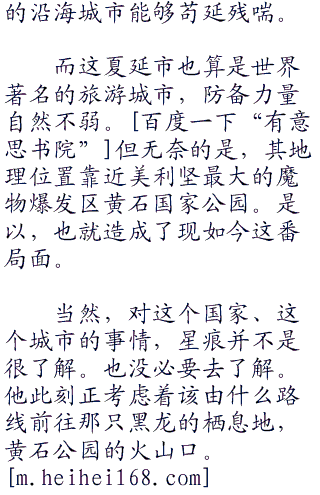 的沿海城市能够苟延残喘。
而这夏延市也算是世界
著名的旅游城市，防备力量
自然不弱。[百度一下“有意
思书院”]但无奈的是，其地
理位置靠近美利坚最大的魔
物爆发区黄石国家公园。是
以，也就造成了现如今这番
局面。
当然，对这个国家、这
个城市的事情，星痕并不是
很了解。也没必要去了解。
他此刻正考虑着该由什么路
线前往那只黑龙的栖息地，
黄石公园的火山口。
[m.heihei168.com]